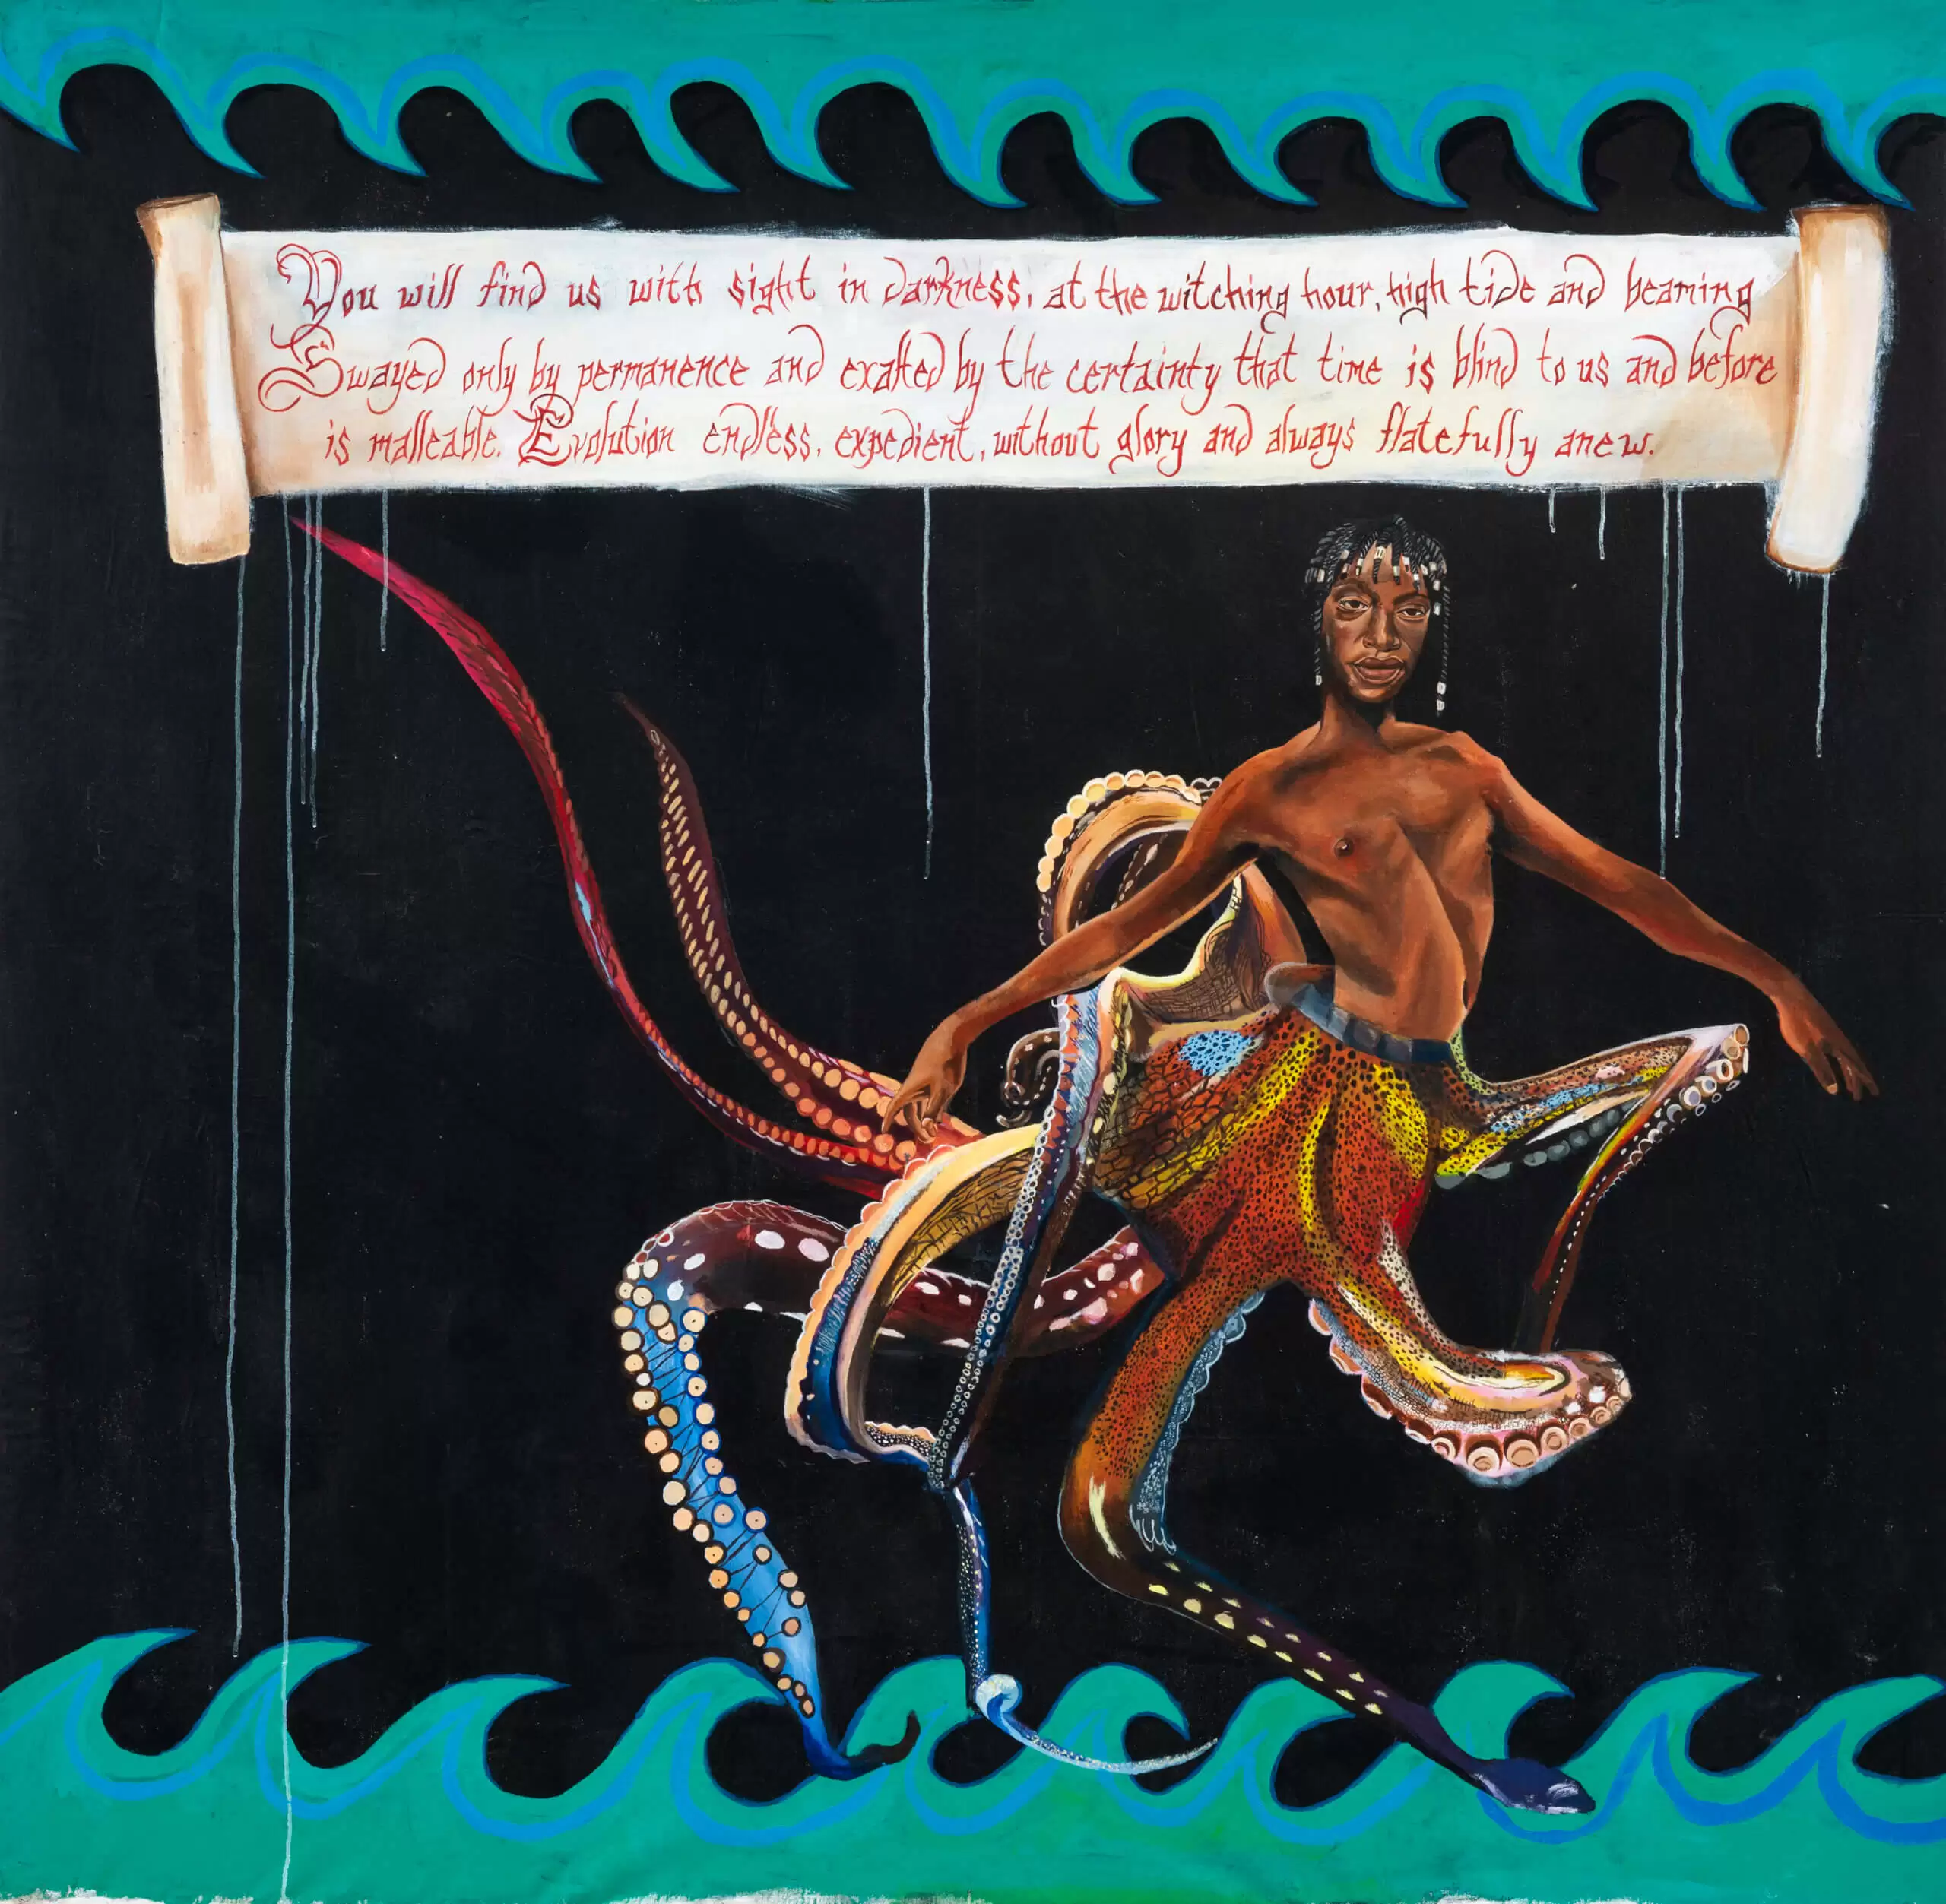 You will find us with sight in darkness, at the witching hour, high tide and beaming
Swayed only by permanence and exalted by the certainty that time is blind to us and before
is malleable. Evolution endless, expedient, without glory and always flatefully anew.